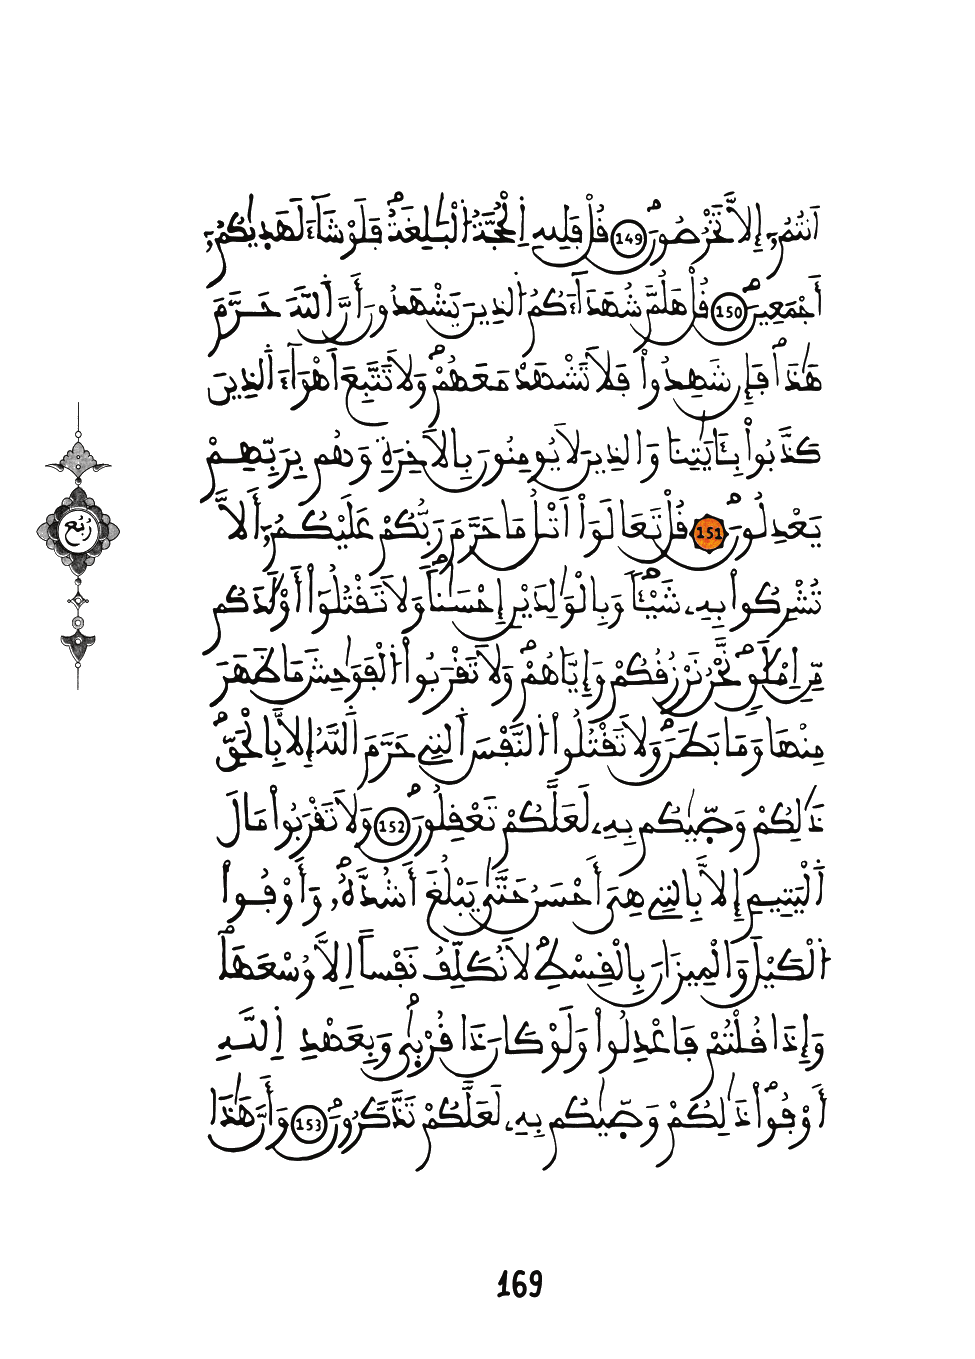 أَنتُمُۥٓ إِلَّا تَخْرُصُونَۖ 149 قُلْ فَلِلهِ اِ۬لْحُجَّةُ اُ۬لْبَٰلِغَةُۖ فَلَوْ شَآءَ لَهَد۪يٰكُمُۥٓ
أَجْمَعِينَۖ 150 قُلْ هَلُمَّ شُهَدَآءَكُمُ اُ۬لذِينَ يَشْهَدُونَ أَنَّ اَ۬للَّهَ حَرَّمَ
هَٰذَاۖ فَإِن شَهِدُواْ فَلَا تَشْهَدْ مَعَهُمْۖ وَلَا تَتَّبِعَ اَهْوَآءَ اَ۬لذِينَ
كَذَّبُواْ بِـَٔايَٰتِنَا وَالذِينَ لَا يُومِنُونَ بِالَاخِرَةِ وَهُم بِرَبِّهِمْ
يَعْدِلُونَۖ 151 قُلْ تَعَالَوَاْ اَتْلُ مَا حَرَّمَ رَبُّكُمْ عَلَيْكُمُۥٓ أَلَّا
تُشْرِكُواْ بِهِۦ شَيْـٔاٗۖ وَبِالْوَٰلِدَيْنِ إِحْسَٰناٗۖ وَلَا تَقْتُلُوٓاْ أَوْلَٰدَكُم
مِّنِ اِمْلَٰقٖۖ نَّحْنُ نَرْزُقُكُمْ وَإِيَّاهُمْۖ وَلَا تَقْرَبُواْ اُ۬لْفَوَٰحِشَ مَا ظَهَرَ
مِنْهَا وَمَا بَطَنَۖ وَلَا تَقْتُلُواْ اُ۬لنَّفْسَ اَ۬لتِے حَرَّمَ اَ۬للَّهُ إِلَّا بِالْحَقِّۖ
ذَٰلِكُمْ وَصّ۪يٰكُم بِهِۦ لَعَلَّكُمْ تَعْقِلُونَۖ 152 وَلَا تَقْرَبُواْ مَالَ
اَ۬لْيَتِيمِ إِلَّا بِالتِے هِيَ أَحْسَنُ حَتَّىٰ يَبْلُغَ أَشُدَّهُۥۖ وَأَوْفُواْ
اُ۬لْكَيْلَ وَالْمِيزَانَ بِالْقِسْطِۖ لَا نُكَلِّفُ نَفْساً اِلَّا وُسْعَهَاۖ
وَإِذَا قُلْتُمْ فَاعْدِلُواْ وَلَوْ كَانَ ذَا قُرْب۪يٰۖ وَبِعَهْدِ اِ۬للَّهِ
أَوْفُواْۖ ذَٰلِكُمْ وَصّ۪يٰكُم بِهِۦ لَعَلَّكُمْ تَذَّكَّرُونَۖ 153 وَأَنَّ هَٰذَا
رُبُع
169